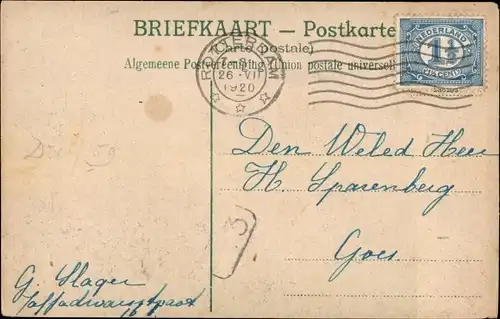 BRIEFKAART — Postkarte
(Carte postale)
Algemeene Postvereeniging (Union postale universelle)
ROTTERDAM
26 VI
1920
NEDERLAND
1½
CENT
Den Weled Heer
H. Sparenberg
Goes
3
G. Slager